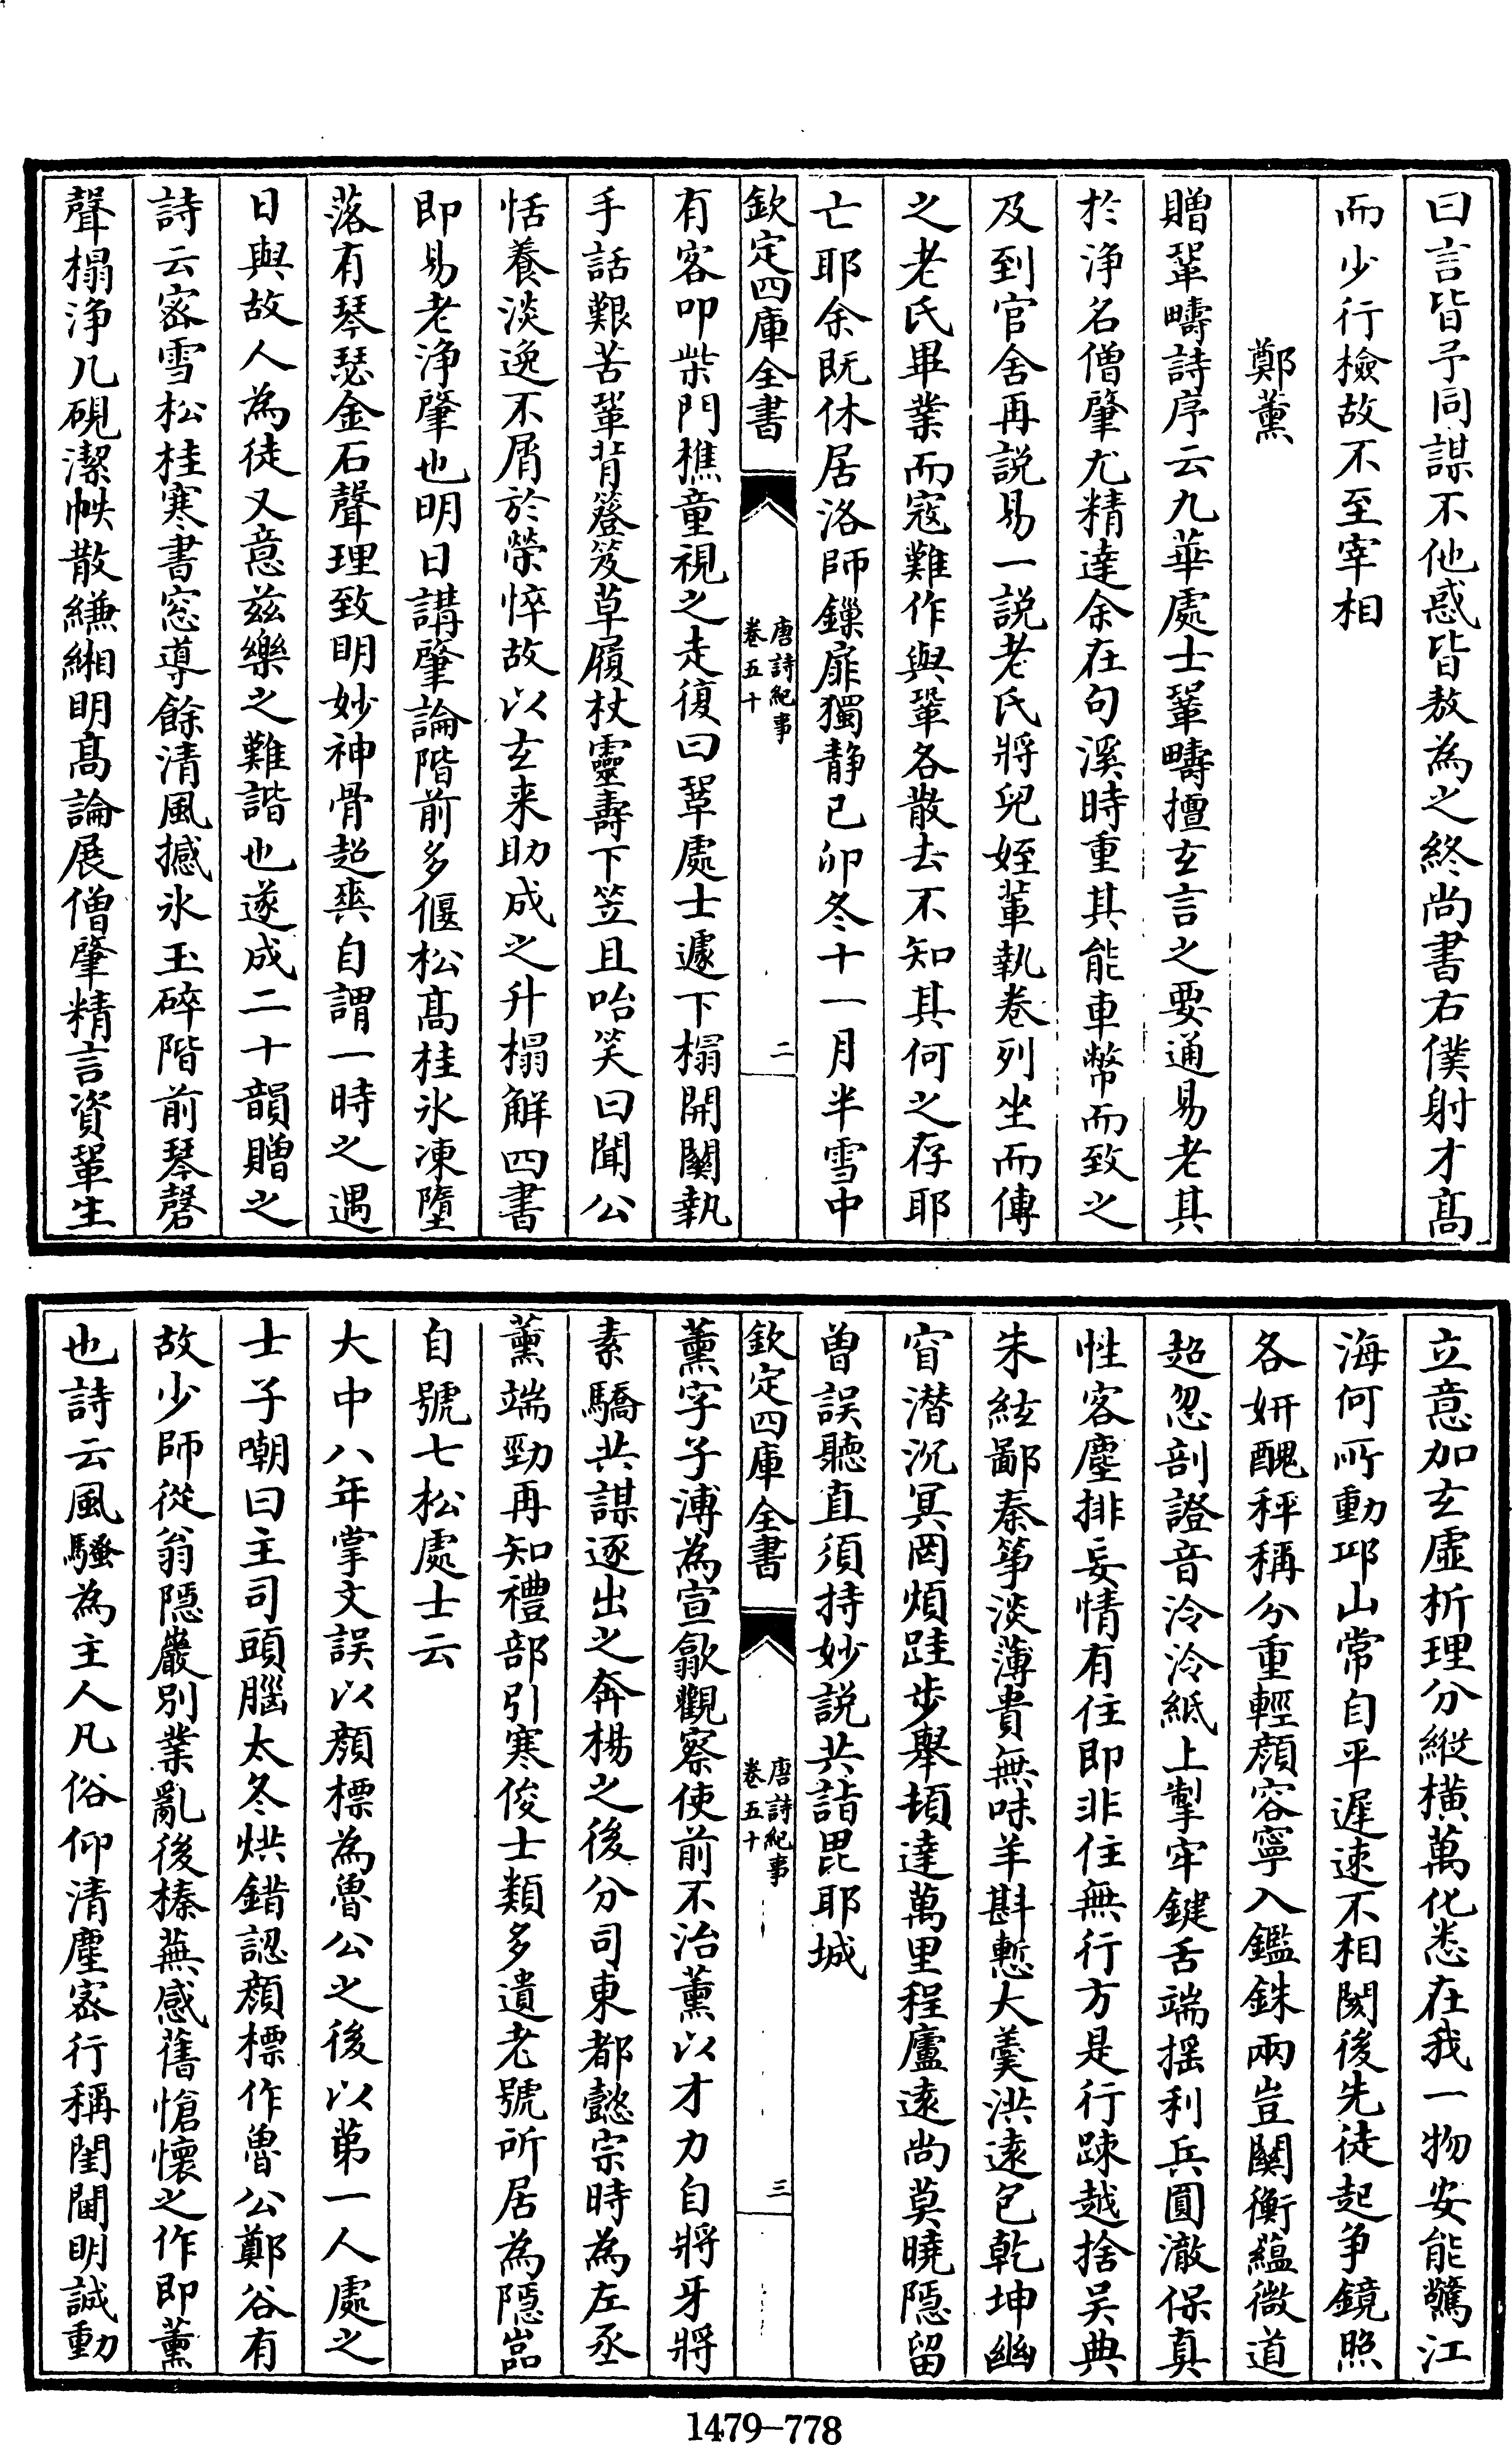 曰言皆予同謀不他惑皆敖為之終尚書右僕射才髙
而少行檢故不至宰相
鄭薰
贈鞏疇詩序云九華處士鞏疇擅玄言之要通易老其
於浄名僧肇尤精達余在句溪時重其能車幣而致之
及到官舍再説易一説老氏將兒姪輩執卷列坐而傳
之老氏畢業而寇難作與鞏各散去不知其何之存耶
亡耶余既休居洛師鏁扉獨静已卯冬十一月半雪中
欽定四庫全書
唐詩紀事
卷五十
二
有客叩柴門樵童視之走復曰鞏處士遽下榻開闗執
手話艱苦鞏背簦笈草屨杖靈壽下笠且咍笑曰聞公
恬養淡逸不屑於榮悴故以玄来助成之升榻解四書
即易老浄肇也明日講肇論階前多偃松髙桂氷凍墮
落有琴瑟金石聲理致明妙神骨超爽自謂一時之遇
日與故人為徒又意兹樂之難諧也遂成二十韻贈之
詩云宻雪松桂寒書窓導餘清風撼氷玉碎階前琴磬
聲榻浄几硯潔帙散縑緗明髙論展僧肇精言資鞏生
立意加玄虚析理分縱横萬化悉在我一物安能驚江
海何所動邛山常自平遲速不相閱後先徒起争鏡照
各妍醜秤稱分重輕顔容寧入鑑銖兩豈闗衡藴微道
超忽剖證音泠泠紙上掣牢鍵舌端揺利兵圓澈保真
性客塵排妄情有住即非住無行方是行踈越捨吴典
朱絃鄙秦筝淡薄貴無味羊斟慙大羮洪逺包乾坤幽
窅潜沉冥罔煩跬步舉頓達萬里程廬逺尚莫曉隠留
曽誤聽直須持妙説共詣毘耶城
欽定四庫全書
唐詩紀事
卷五十
三
薰字子溥為宣歙觀察使前不治薰以才力自將牙將
素驕共謀逐出之奔楊之後分司東都懿宗時為左丞
薰端勁再知禮部引寒俊士類多遺老號所居為隠嵓
自號七松處士云
大中八年掌文誤以顔標為魯公之後以第一人處之
士子嘲曰主司頭腦太冬烘錯認顔標作魯公鄭谷有
故少師從翁隠巖别業亂後榛蕪感舊愴懷之作即薰
也詩云風騷為主人凡俗仰清塵宻行稱閨閫明誠動
1479-778